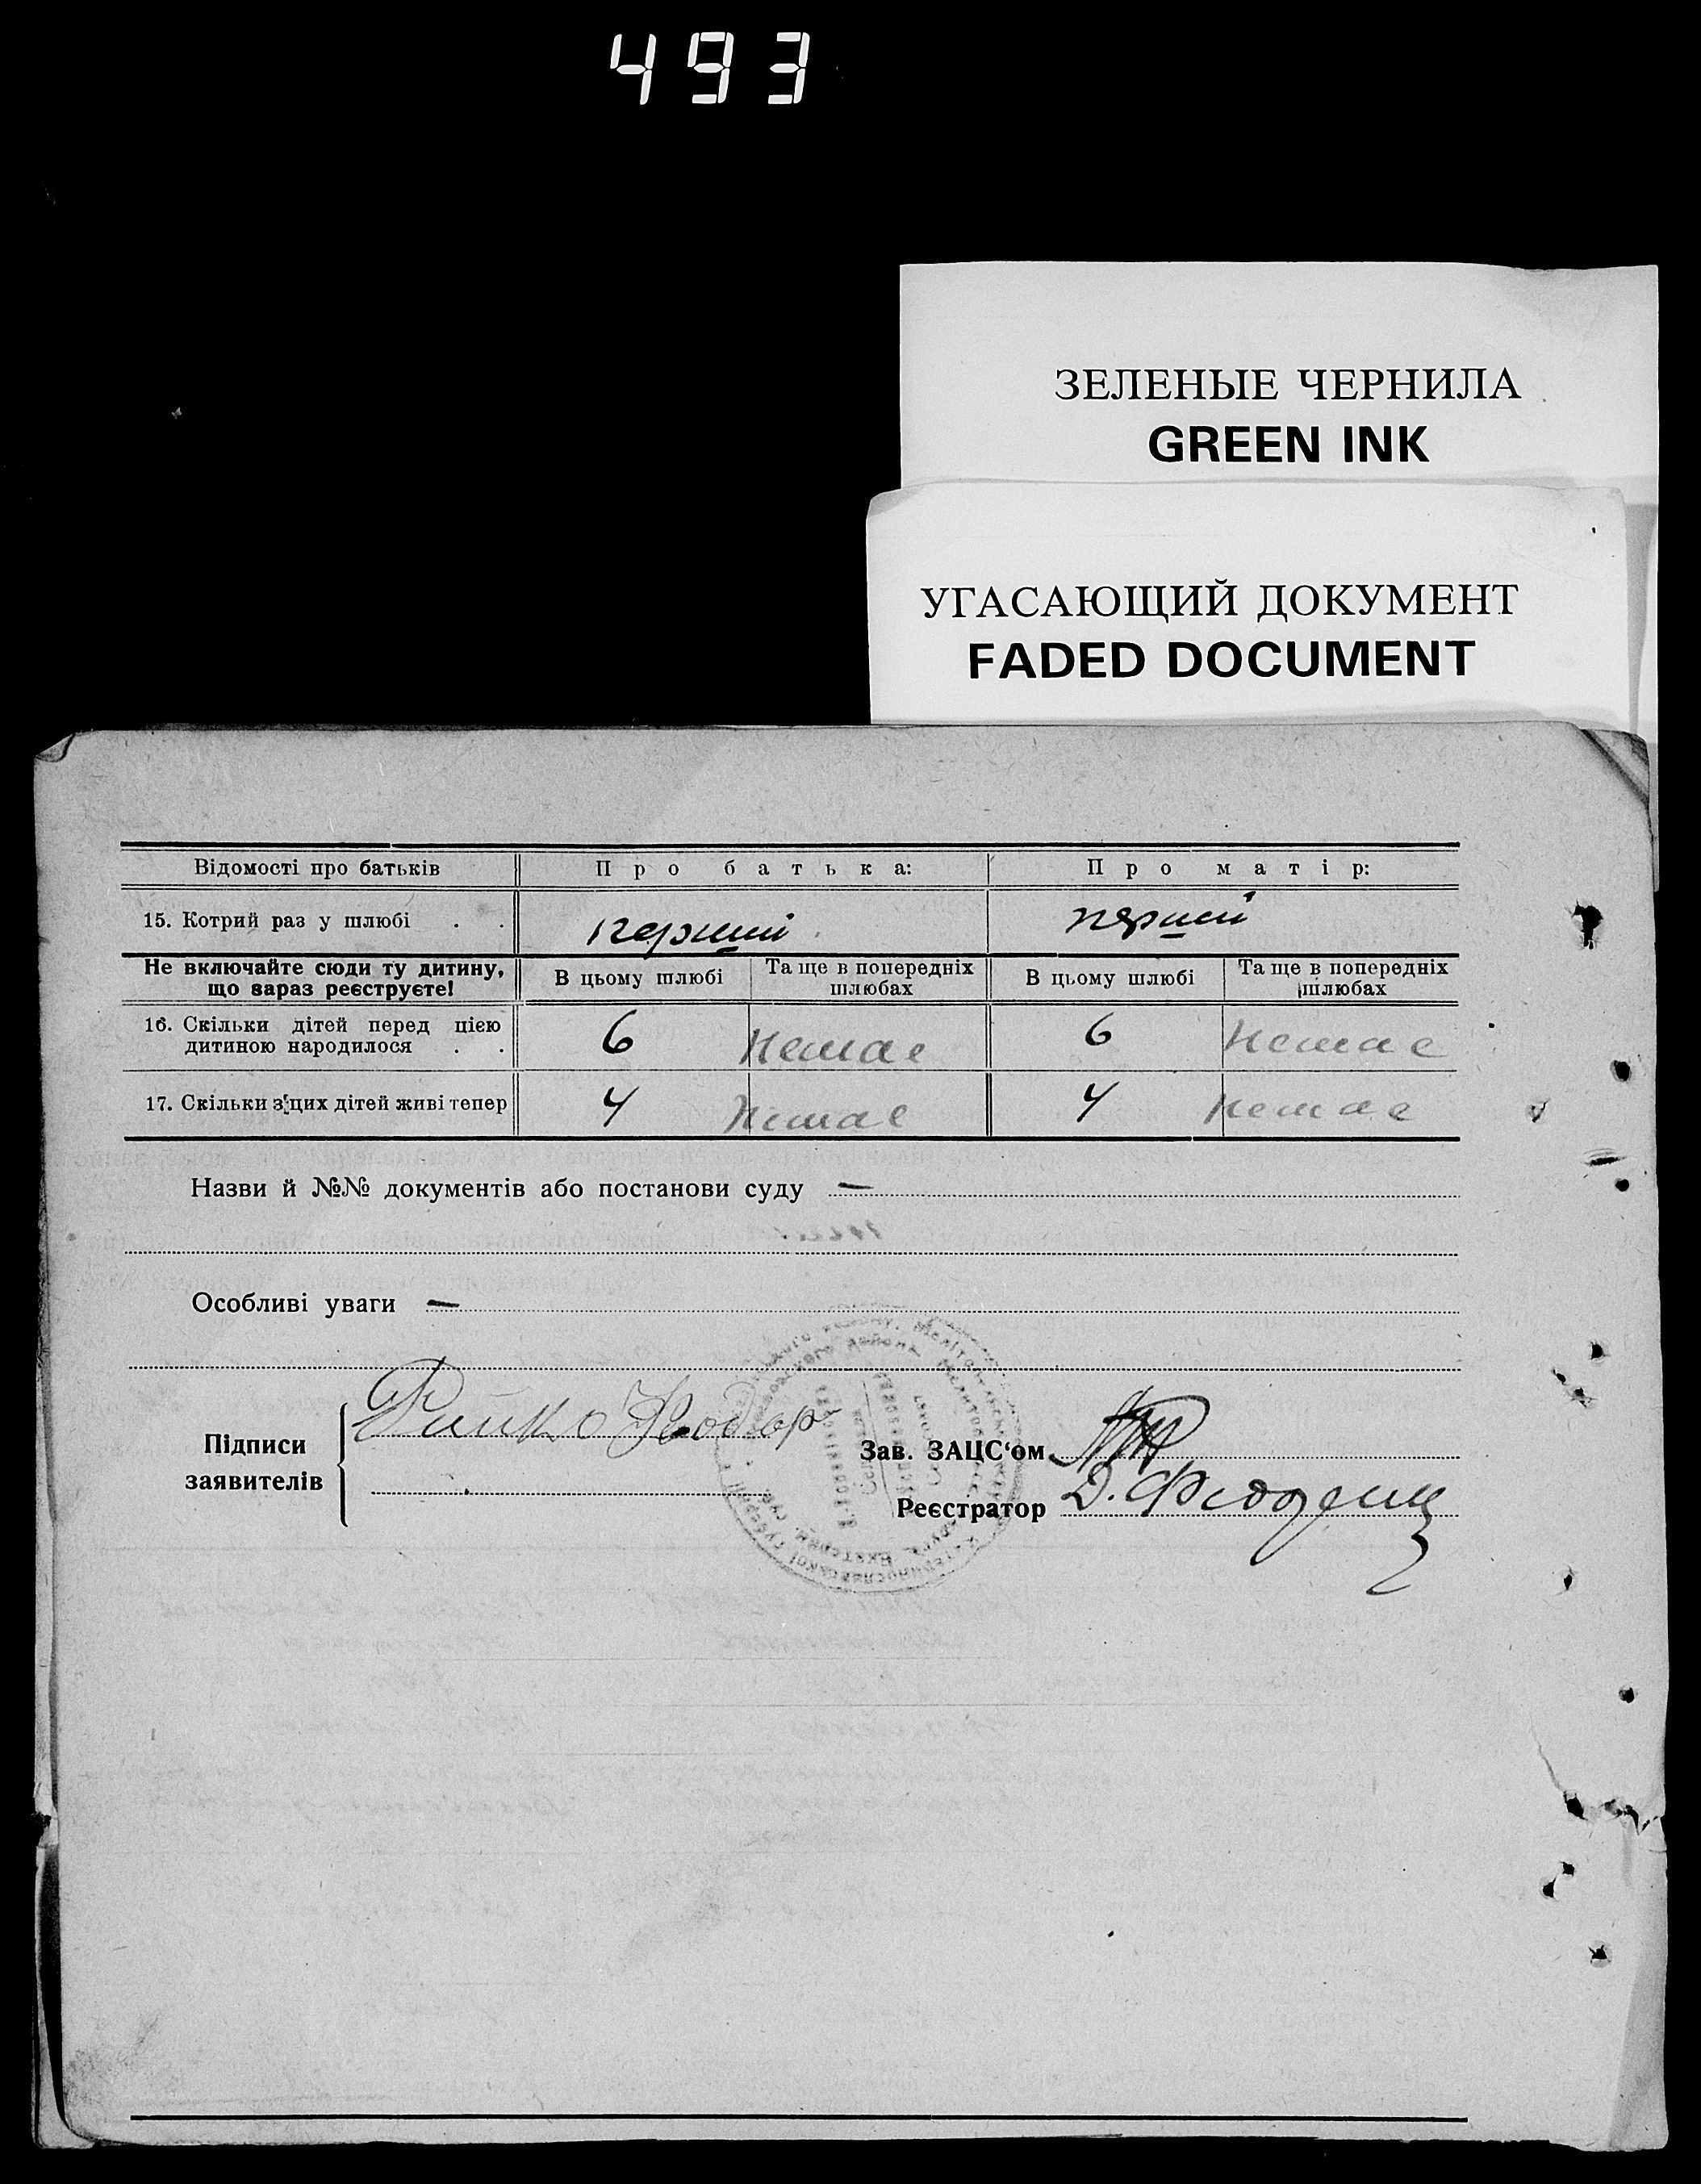 493
ЗЕЛЕНЫЕ ЧЕРНИЛА
GREEN INK
УГАСАЮЩИЙ ДОКУМЕНТ
FADED DOCUMENT
Відомості про батьків Про батька: Про матір:
15. Котрий раз у шлюбі . . перший перший
Не включайте сюди ту дитину, що зараз реєструєте! В цьому шлюбі Та ще в попередніх шлюбах В цьому шлюбі Та ще в попередніх шлюбах
16. Скільки дітей перед цією дитиною народилося . . 6 немає 6 немає
17. Скільки з цих дітей живі тепер 4 немає 4 немає
Назви й №№ документів або постанови суду —
Особливі уваги —
Підписи заявителів
Зав. ЗАЦС'ом
Реєстратор Д.